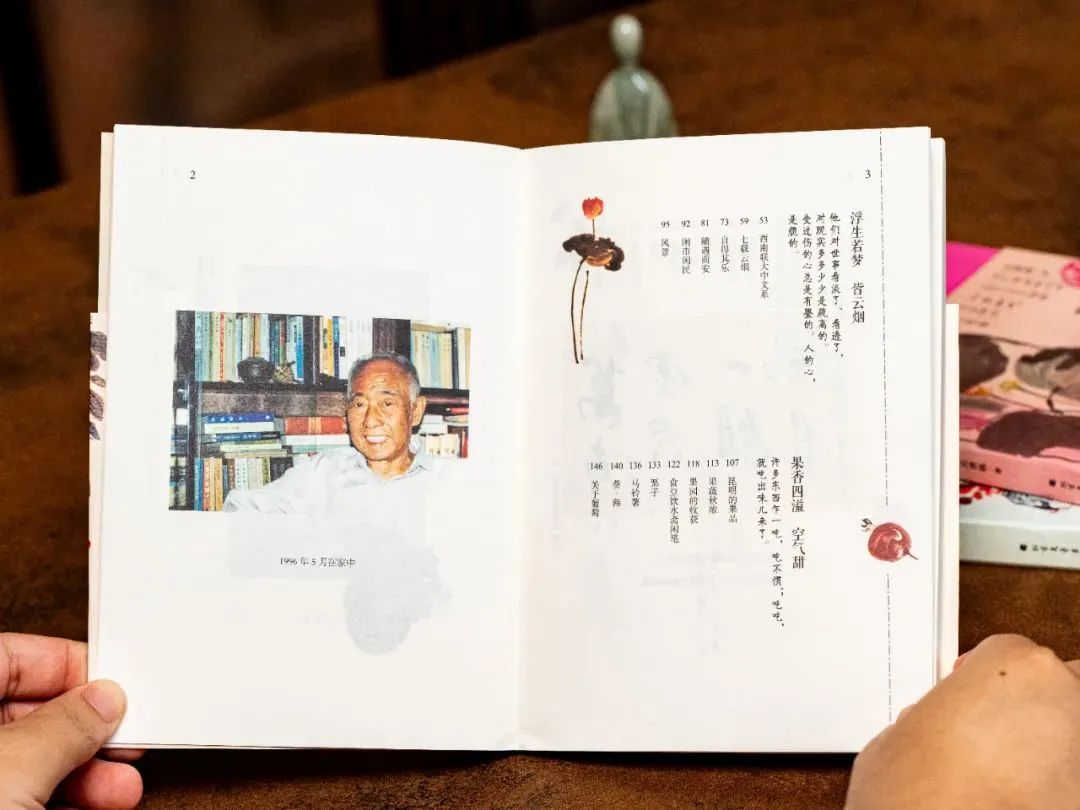 2
1996年5月在家中
3
浮生若梦 皆云烟
他们对世事看淡了、看透了，
对现实多多少少是疏离的。
受过伤的心总是有璺的。人的心，
是脆的。
53 西南联大中文系
59 七载云烟
73 自得其乐
81 随遇而安
92 闹市闲民
95 风景
果香四溢 空气甜
许多东西乍一吃，吃不惯；吃吃，
就吃出味儿来了。
107 昆明的果品
113 果蔬秋浓
118 果园的收获
122 食豆饮水斋闲笔
133 栗子
136 马铃薯
140 葵·薤
146 关于葡萄